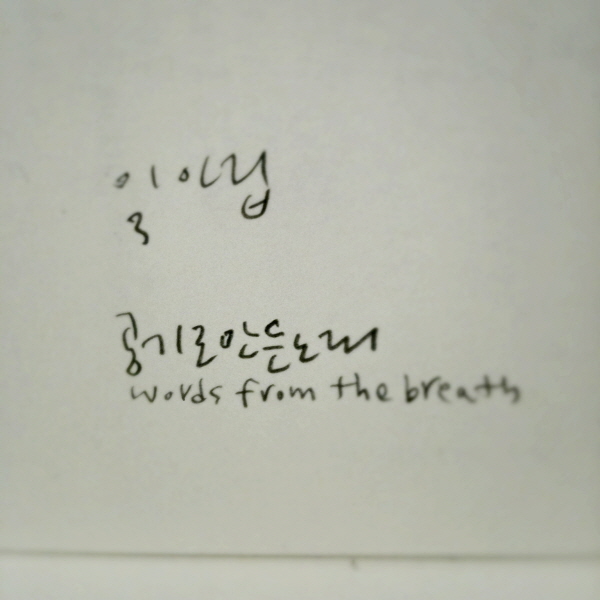 이아립
3
공기로만든노래
words from the breath